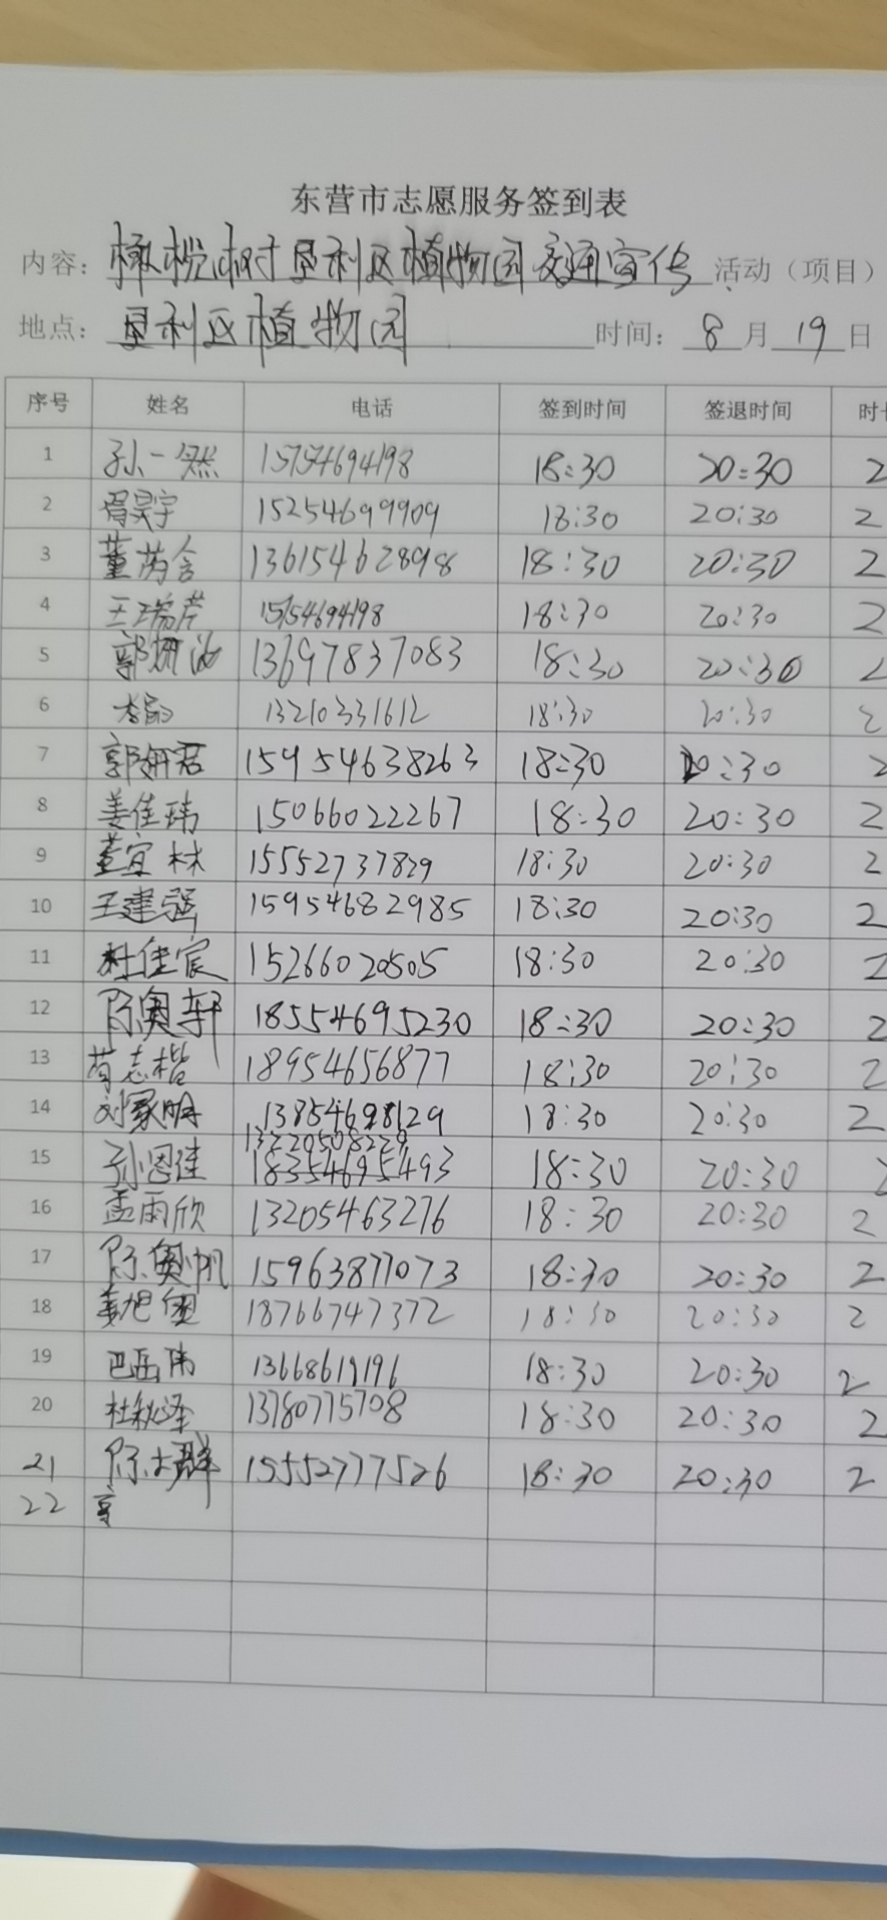 东营市志愿服务签到表
内容：橄榄树垦利区植物园交通宣传活动（项目）
地点：垦利区植物园 时间：8月19日
序号 姓名 电话 签到时间 签退时间 时
1 孙一然 15154694198 18:30 20:30 2
2 胥昊宇 15254699909 18:30 20:30 2
3 董芮含 13615462898 18:30 20:30 2
4 王瑞芹 15154694198 18:30 20:30 2
5 郭姗 13697837083 18:30 20:30 2
6 李 13210331612 18:30 20:30 2
7 郭妍君 15954638263 18:30 20:30 2
8 姜佳玮 15066022267 18:30 20:30 2
9 董宜林 15552737829 18:30 20:30 2
10 王建强 15954682985 18:30 20:30 2
11 杜佳宸 15266020505 18:30 20:30 2
12 陈奥轩 18554695230 18:30 20:30 2
13 苟志楷 18954656877 18:30 20:30 2
14 刘家明 13854698129 18:30 20:30 2
13220508229
15 孙恩佳 18354695493 18:30 20:30 2
16 孟雨欣 13205463276 18:30 20:30 2
17 陈奥帆 15963877073 18:30 20:30 2
18 姜旭 18766747372 18:30 20:30 2
19 巴岳伟 13668619196 18:30 20:30 2
20 杜秋泽 13780775708 18:30 20:30 2
21 陈士群 15552777526 18:30 20:30 2
22